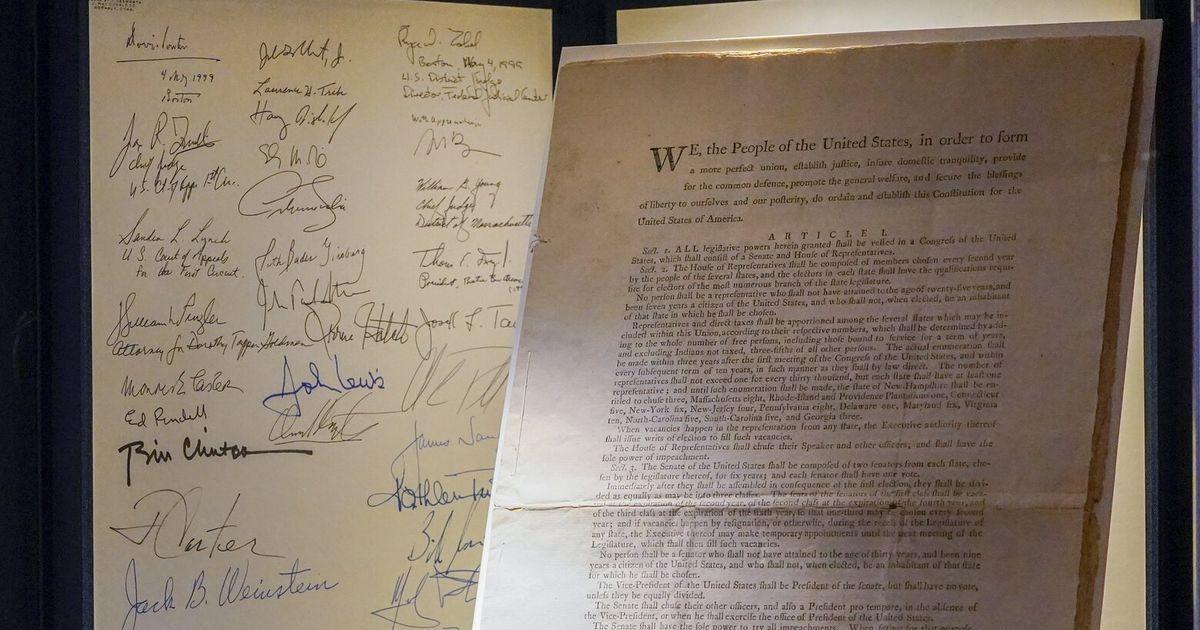 4 May 1999
Boston
Chief Judge
Sandra L. Lynch
U.S. Court of Appeals
for the First Circuit
William L
Attorney for Dorothy Tapper Goldman
Ed Rendell
Bill Clinton
J Carter
Jack B. Weinstein
Laurence H. Tribe
Ruth Bader Ginsburg
John Lewis
Boston, May 4, 1999
U.S. District Judge
Director, Federal Judicial Center
with appreciation
William G. Young
Chief Judge
District of Massachusetts
President, Boston
James
Kathleen
Bill
WE, the People of the United States, in order to form
a more perfect union, eſtabliſh juſtice, inſure domeſtic tranquility, provide
for the common defence, promote the general welfare, and ſecure the bleſſings
of liberty to ourſelves and our poſterity, do ordain and eſtabliſh this Conſtitution for the
United States of America.
ARTICLE I.
Sect. 1. ALL legiſlative powers herein granted ſhall be veſted in a Congreſs of the United
States, which ſhall conſiſt of a Senate and Houſe of Repreſentatives.
Sect. 2. The Houſe of Repreſentatives ſhall be compoſed of members choſen every ſecond year
by the people of the ſeveral ſtates, and the electors in each ſtate ſhall have the qualifications requi-
ſite for electors of the moſt numerous branch of the ſtate legiſlature.
No perſon ſhall be a repreſentative who ſhall not have attained to the age of twenty-five years, and
been ſeven years a citizen of the United States, and who ſhall not, when elected, be an inhabitant
of that ſtate in which he ſhall be choſen.
Repreſentatives and direct taxes ſhall be apportioned among the ſeveral ſtates which may be in-
cluded within this Union, according to their reſpective numbers, which ſhall be determined by add-
ing to the whole number of free perſons, including thoſe bound to ſervice for a term of years,
and excluding Indians not taxed, three-fifths of all other perſons. The actual enumeration ſhall
be made within three years after the firſt meeting of the Congreſs of the United States, and within
every ſubſequent term of ten years, in ſuch manner as they ſhall by law direct. The number of
repreſentatives ſhall not exceed one for every thirty thouſand, but each ſtate ſhall have at leaſt one
repreſentative; and until ſuch enumeration ſhall be made, the ſtate of New-Hampſhire ſhall be en-
titled to chuſe three, Maſſachuſetts eight, Rhode-Iſland and Providence Plantations one, Connecticut
five, New-York ſix, New-Jerſey four, Pennſylvania eight, Delaware one, Maryland ſix, Virginia
ten, North-Carolina five, South-Carolina five, and Georgia three.
When vacancies happen in the repreſentation from any ſtate, the Executive authority thereof
ſhall iſſue writs of election to fill ſuch vacancies.
The Houſe of Repreſentatives ſhall chuſe their Speaker and other officers; and ſhall have the
ſole power of impeachment.
Sect. 3. The Senate of the United States ſhall be compoſed of two ſenators from each ſtate, cho-
ſen by the legiſlature thereof, for ſix years; and each ſenator ſhall have one vote.
Immediately after they ſhall be aſſembled in conſequence of the firſt election, they ſhall be divi-
ded as equally as may be into three claſſes. The ſeats of the ſenators of the firſt claſs ſhall be vaca-
ted at the expiration of the ſecond year, of the ſecond claſs at the expiration of the fourth year, and
of the third claſs at the expiration of the ſixth year, ſo that one-third may be choſen every ſecond
year; and if vacancies happen by reſignation, or otherwiſe, during the receſs of the Legiſlature of
any ſtate, the Executive thereof may make temporary appointments until the next meeting of the
Legiſlature, which ſhall then fill ſuch vacancies.
No perſon ſhall be a ſenator who ſhall not have attained to the age of thirty years, and been nine
years a citizen of the United States, and who ſhall not, when elected, be an inhabitant of that ſtate
for which he ſhall be choſen.
The Vice-Preſident of the United States ſhall be Preſident of the ſenate, but ſhall have no vote,
unleſs they be equally divided.
The Senate ſhall chuſe their other officers, and alſo a Preſident pro tempore, in the abſence of
the Vice-Preſident, or when he ſhall exerciſe the office of Preſident of the United States.
The Senate ſhall have the ſole power to try all impeachments. When ſitting for that purpoſe